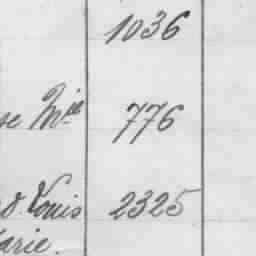 1036
se Mie 776
d. Louis 2325
arie.